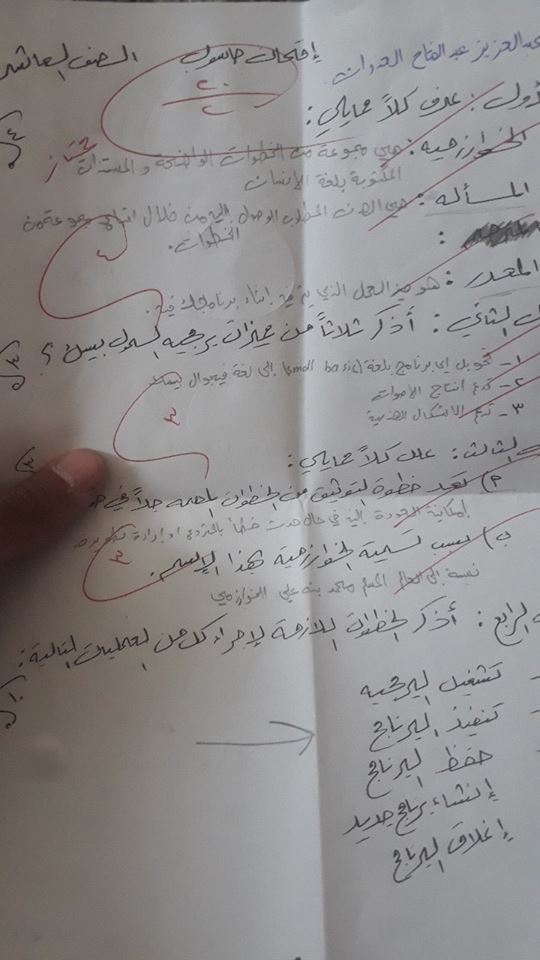 عبدالعزيز عبد الفتاح
إمتحان حاسوب الصف العاشر
٢٠
٢٠
ممتاز
الأول: عرف كلاً ممايلي: ٤
الخوارزمية: هي مجموعة من الخطوات الواضحة و
المكتوبة بلغة الإنسان
المسأله: هي الهدف المطلوب الوصول إليه من خلال اتباع مجموعة من
الخطوات.
٤
هو حيز العمل الذي يتم فيه إنشاء برنامجك فيه.
الثاني: أذكر ثلاثاً من مميزات برمجيه السمول بيسك؟ ٣
١- تحويل اي برنامج بلغة (small basic) إلى لغة فيجوال بيسك
٢- تدعم انتاج الاصوات
٣- تدعم الاشكال الهندسية
٣
الثالث: علل كلاً ممايلي: ٣
أ) تعد خطوة التوثيق من الخطوات
إمكانية العودة إليه في حال حدث
ب) سبب تسمية الخوارزمية بهذا الإسم.
٣
نسبة إلى العالم المسلم محمد بن علي الخوارزمي
الرابع: أذكر الخطوات اللازمة لإجراء كل من العمليات التالية: ١٠
تشغيل البرمجيه
تنفيذ البرنامج
حفظ البرنامج
إنشاء برنامج جديد
إغلاق البرنامج